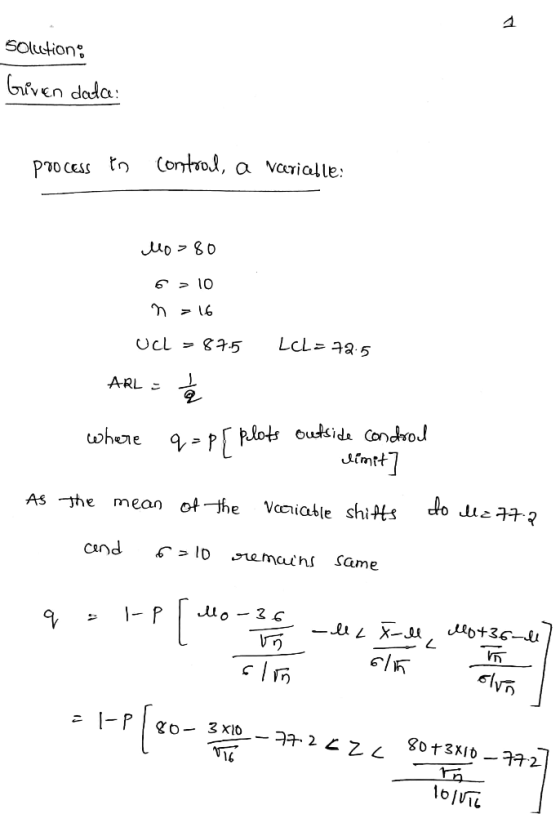 1
Solution:
Given data:
process in control, a variable:
μ0 = 80
σ = 10
n = 16
UCL = 87.5 LCL = 72.5
ARL = 1/q
where q = P[plots outside control
limit]
As the mean of the variable shifts to μ = 77.2
and σ = 10 remains same
q = 1-P[(μ0 - 3σ/√n - μ)/(σ/√n) < (x̄-μ)/(σ/√n) < (μ0+3σ/√n-μ)/(σ/√n)]
= 1-P[80 - 3×10/√16 - 77.2 < Z < (80+3×10/√n - 77.2)/(10/√16)]